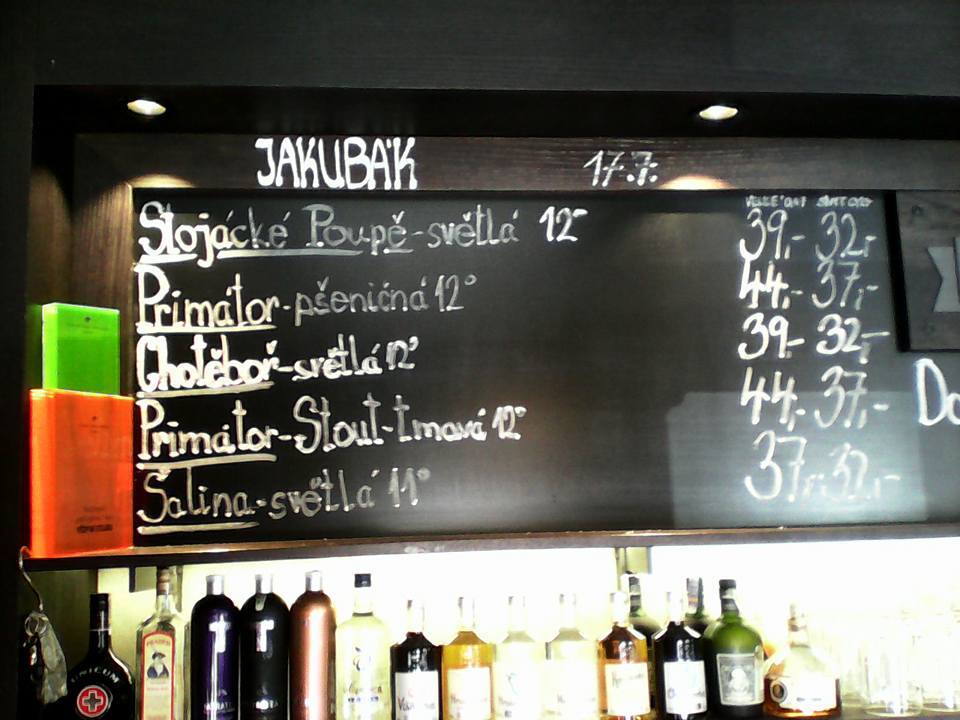 JAKUBÁK 17.7.
Slojácké Poupě-světlá 12° 39,- 32,-
Primátor-pšeničná 12° 44,- 37,-
Chotěboř-světlá 12° 39,- 32,-
Primátor-Stout-tmavá 12° 44,- 37,-
Šalina-světlá 11° 37,- 32,-
Do
UNICUM